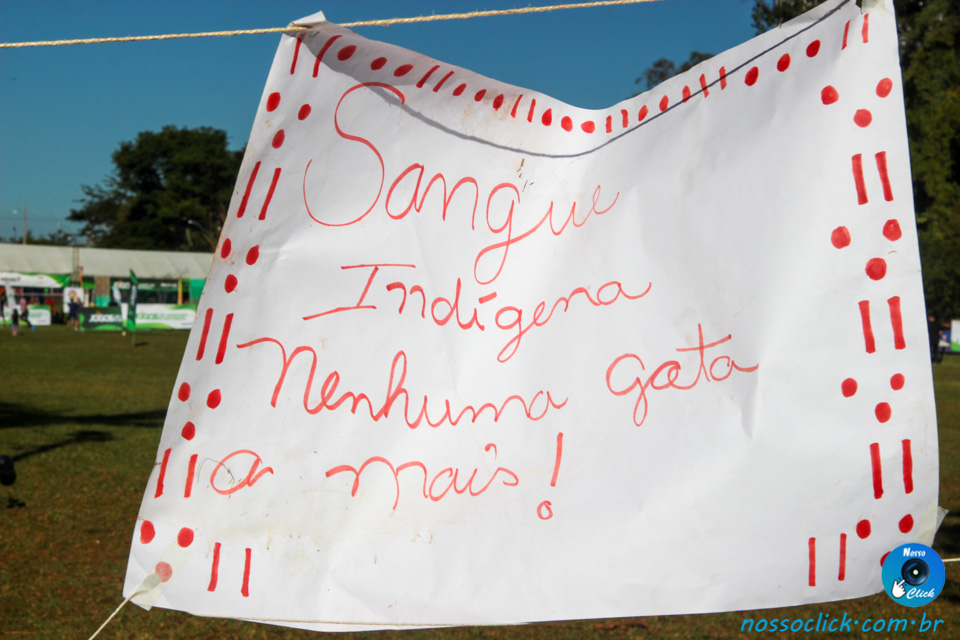 Sangue
Indígena
Nenhuma gota
a mais!
Nosso
Click
nossoclick.com.br